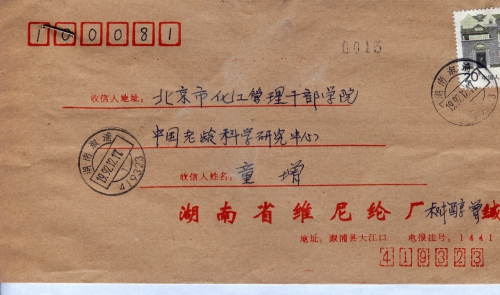 100081
0015
20
收信人地址: 北京市化工管理干部学院
中国老龄科学研究中心
收信人姓名: 童增
湖南溆浦
19.92.12.12
419323
湖南省维尼纶厂树醇曾缄
地址: 溆浦县大江口 电报挂号: 1441
419323